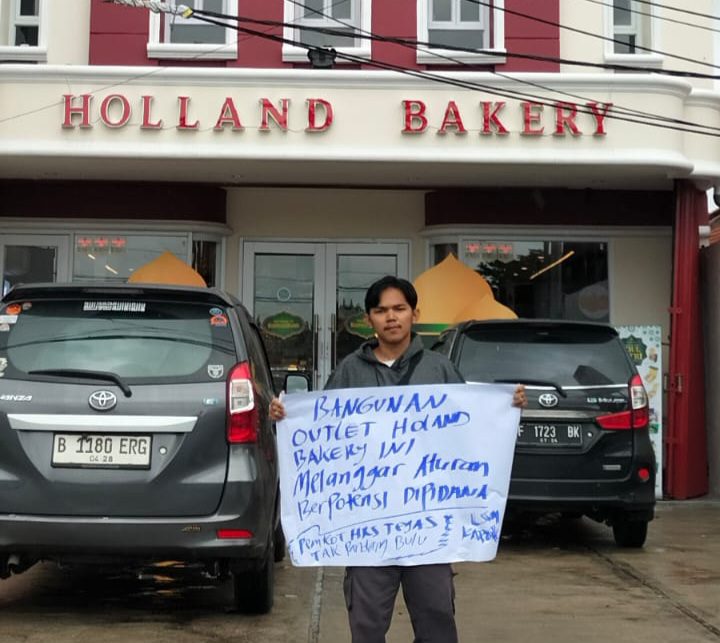 HOLLAND BAKERY
AVANZA
B 1180 ERG
04·28
F 1723 BK
BANGUNAN
OUTLET HOLAND
BAKERY INI
Melanggar Aturan
Berpotensi DIPIDANA
Pemkot HRS TEGAS
TAK Pandang Bulu
LSM